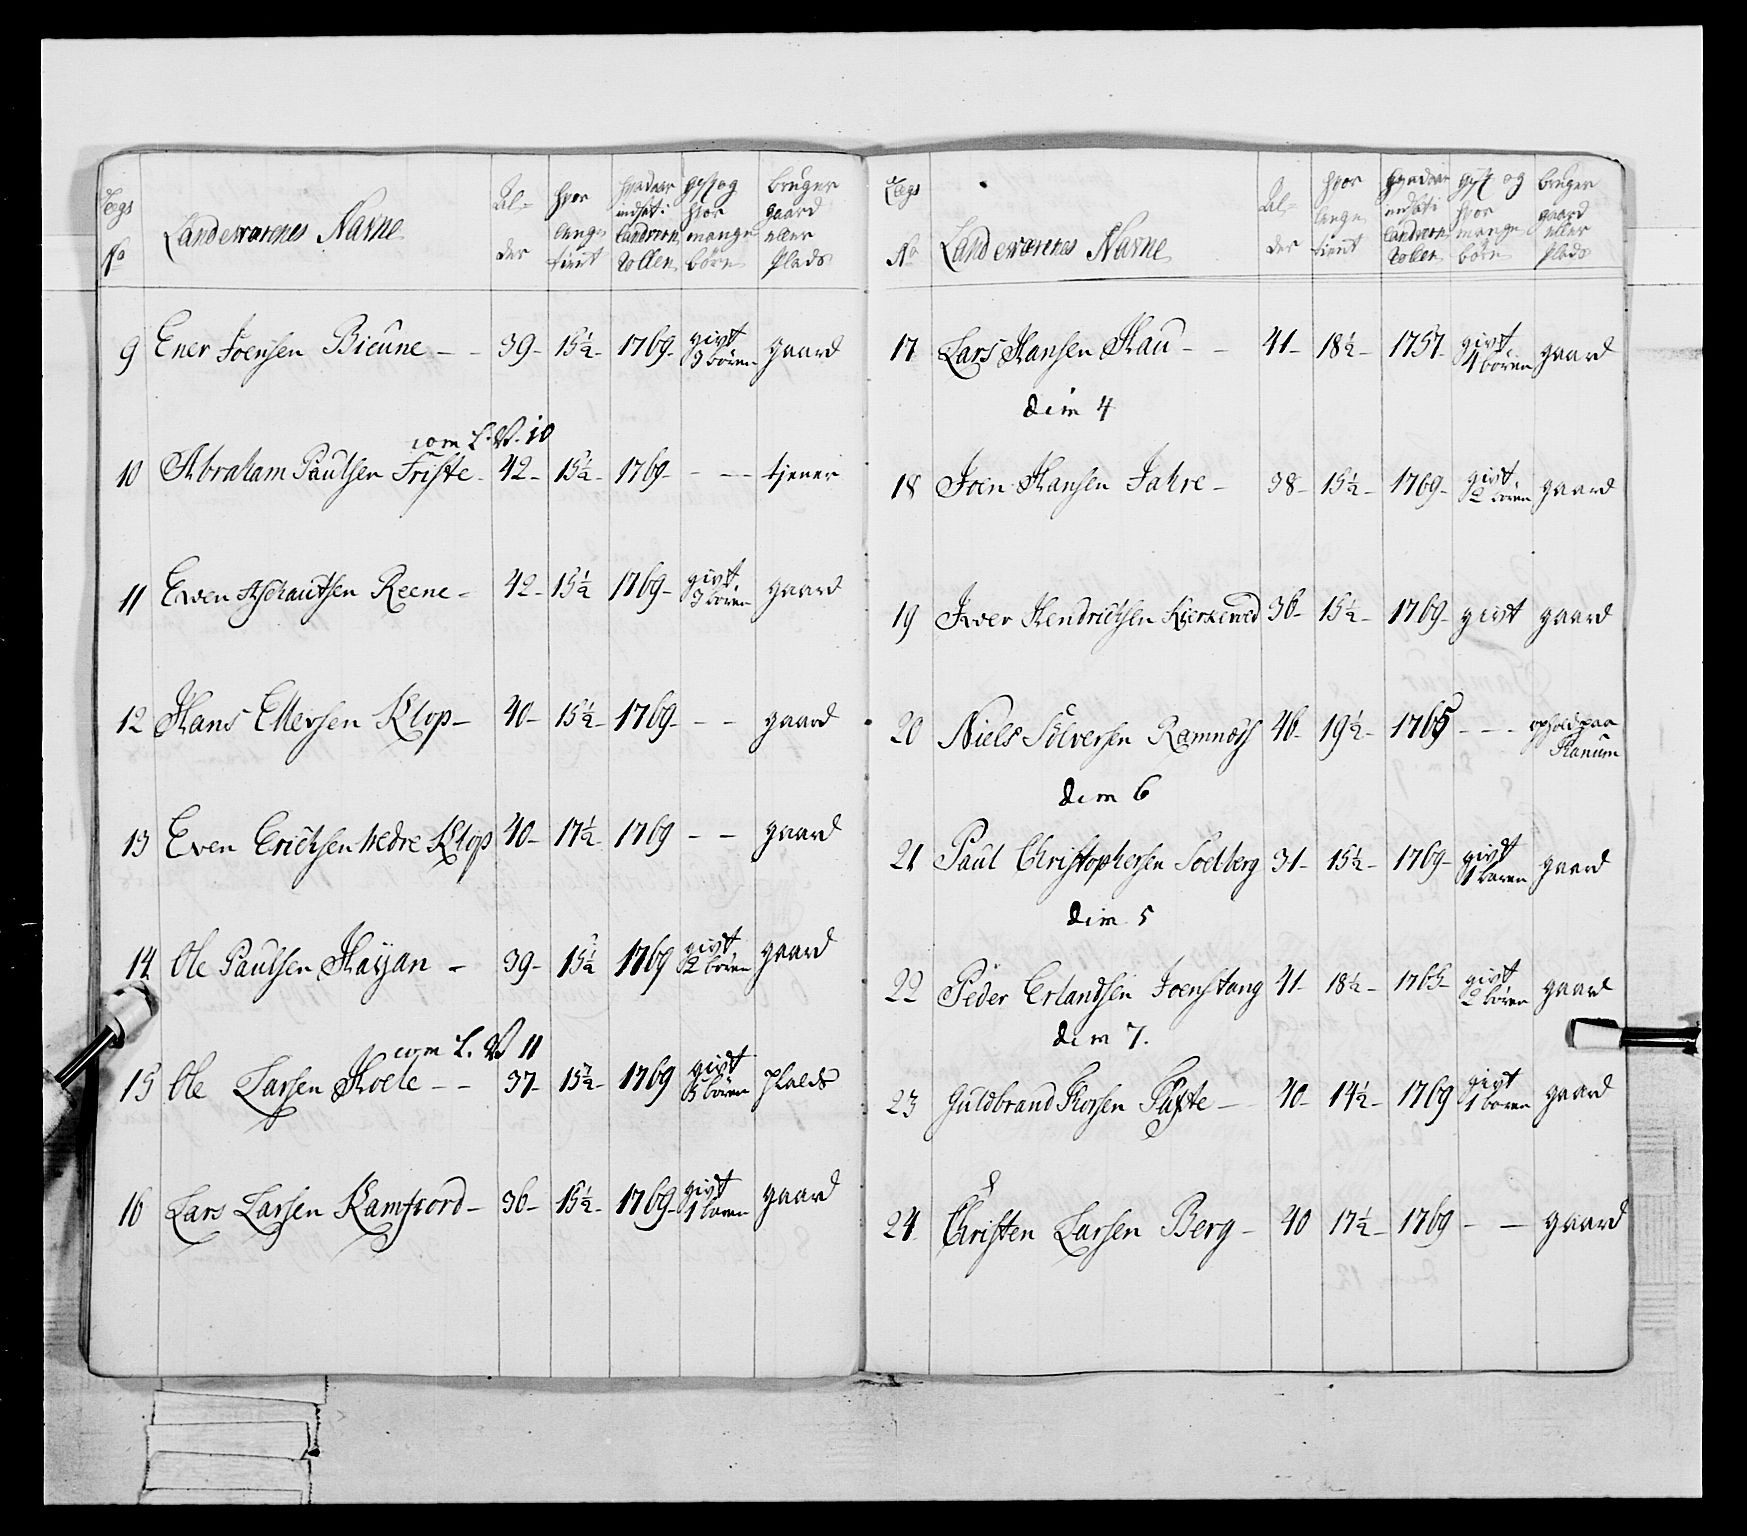 Lægs No | Landeværnes Navne | Al= der | hvor længe tient | hvad aar indsat i Landværn Rollen | gift og hvor mange børn | bruger gaard eller plads
9 Ener Joensen Bieune – – 39– 15½– 1769– givt 3 børen gaard
com L. V. 10
10 Abraham Paulsen Friste– 42– 15½– 1769– – – – tjener
11 Even Reene– 42– 15½ 1769– givt 3 børen gaard
12 Hans Ellevsen Klop– 40– 15½– 1769– – – gaard
13 Even Erichsen nedre Klop 40– 17½– 1769 – – gaard
14 Ole Paulsen Hayan – 39– 15½ 1769 givt 2 børen gaard
com L. V 11
15 Ole Larsen Hoele – – 37– 15½– 1769 givt 5 børen plads
16 Lars Larsen Ramfiord– 36– 15½– 1769– givt 1 baren gaard
Lægs No | Landeværnes Navne | Al= der | hvor længe tient | hvad aar indsat i Landværn Rollen | gift og hvor mange børn | bruger gaard eller plads
17 Lars Hansen Hau – – 41– 18½– 1757– givt 4 børen gaard
dim 4
18 Joen Hansen Jahre – 38– 15½– 1769– givt 2 børen gaard
19 Iver Hendrichsen 36– 15½– 1769– givt gaard
20 Niels Sølversen Ramnæs 46– 19½– 1765 – – – ophold paa Hanum
dim 6
21 Paul Christophersen Soelberg 31– 15½– 1769– givt 1 baren gaard
dim 5
22 Peder Erlandsen Joenstang 41– 18½– 1765– givt 2 børen gaard
dim 7.
23 Guldbrand Thorsen Püfte – 40– 14½– 1769 givt 1 baren gaard
24 Christen Larsen Berg – 40 17½– 1769 – – gaard